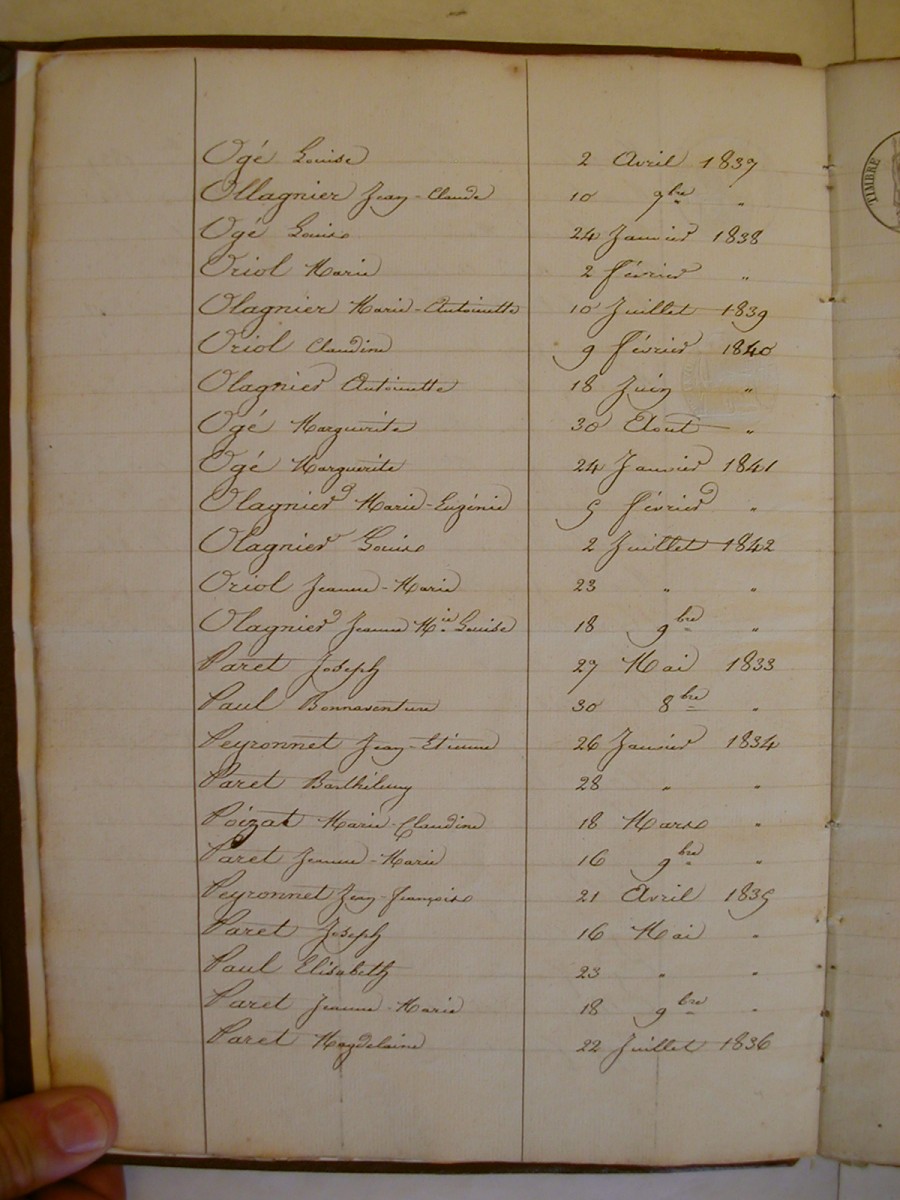 Ogé Louise 2 Avril 1837
Ollagnier Jean-Claude 10 9bre "
Ogé Louise 24 Janvier 1838
Oriol Marie 2 février "
Olagnier Marie-Antoinette 10 Juillet 1839
Oriol Claudine 9 février 1840
Olagnier Antoinette 18 Juin "
Ogé Marguerite 30 Aout "
Ogé Marguerite 24 Janvier 1841
Olagnier Marie-Eugénie 5 février "
Olagnier Louise 2 Juillet 1842
Oriol Jeanne-Marie 23 " "
Olagnier Jeanne Mie Louise 18 9bre "
Paret Joseph 27 Mai 1833
Paul Bonnaventure 30 8bre "
Peyronnet Jean-Etienne 26 Janvier 1834
Paret Barthélemy 28 " "
Poizat Marie-Claudine 18 Mars "
Paret Jeanne-Marie 16 9bre "
Peyronnet Jean-françois 21 Avril 1835
Paret Joseph 16 Mai "
Paul Elisabeth 23 " "
Paret Jeanne-Marie 18 9bre "
Paret Magdelaine 22 Juillet 1836
TIMBRE